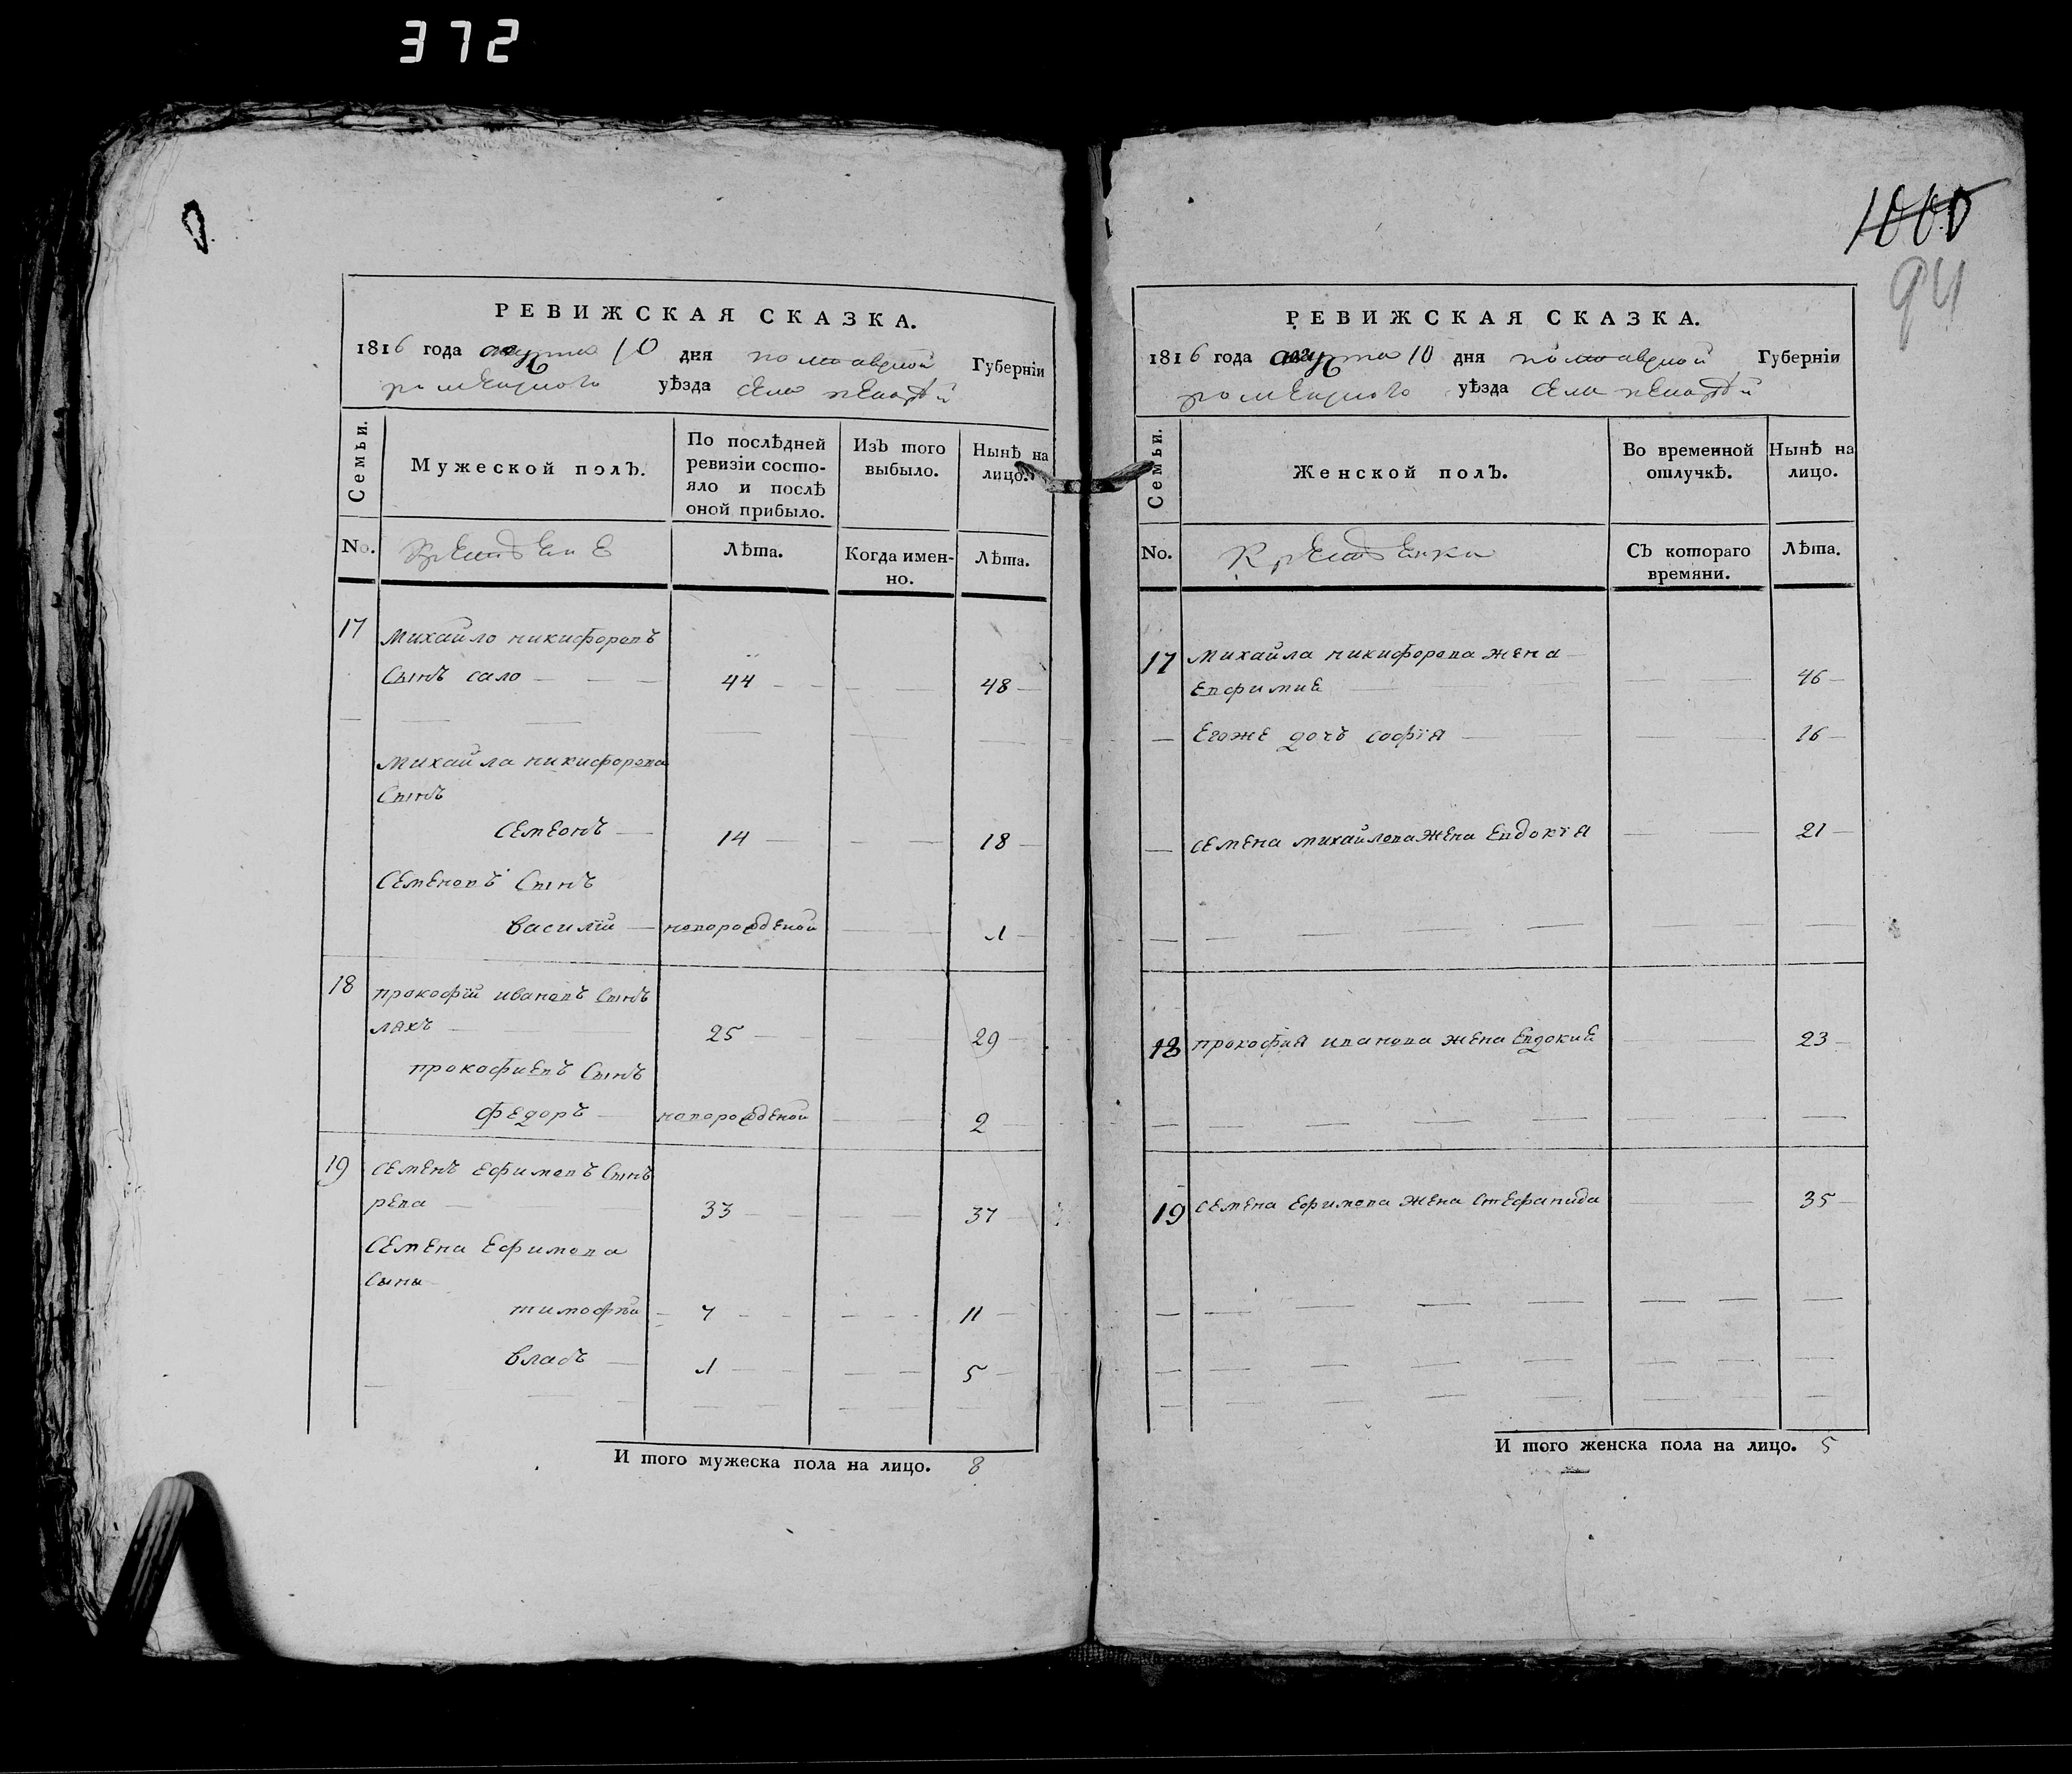 372
РЕВИЖСКАЯ СКАЗКА.
1816 года августа 10 дня полтавской Губерніи
роменского уѣзда села
Семьи.
Мужеской полъ.
По послѣдней ревизіи состо-
яло и послѣ оной прибыло.
Изъ того выбыло.
Нынѣ на лицо.
No.
Крестьяне
Лѣта.
Когда имен-
но.
Лѣта.
17 Михайло никифоровъ
Сынъ сало 44 48
Михайла никифорова
Сынъ
Семенъ 14 18
Семеновъ Сынъ
василій новорожденой 1
18 прокофій ивановъ Сынъ
ляхъ 25 29
прокофиевъ Сынъ
Федоръ новорожденой 2
19 Семенъ Ефимовъ Сынъ
репа 33 37
Семена Ефимова
Сыны
тимофей 7 11
власъ 1 5
И того мужеска пола на лицо. 8
1000
94
РЕВИЖСКАЯ СКАЗКА.
1816 года августа 10 дня полтавской Губерніи
роменского уѣзда села
Семьи.
Женской полъ.
Во временной отлучкѣ.
Нынѣ на лицо.
No.
Крестьянки
Съ котораго времяни.
Лѣта.
17 Михайла никифорова жена
Евфимия 46
Егоже дочь софія 16
Семена михайлова жена Евдокія 21
18 прокофия иванова жена Евдокия 23
19 Семена Ефимова жена Стефанида 35
И того женска пола на лицо. 5